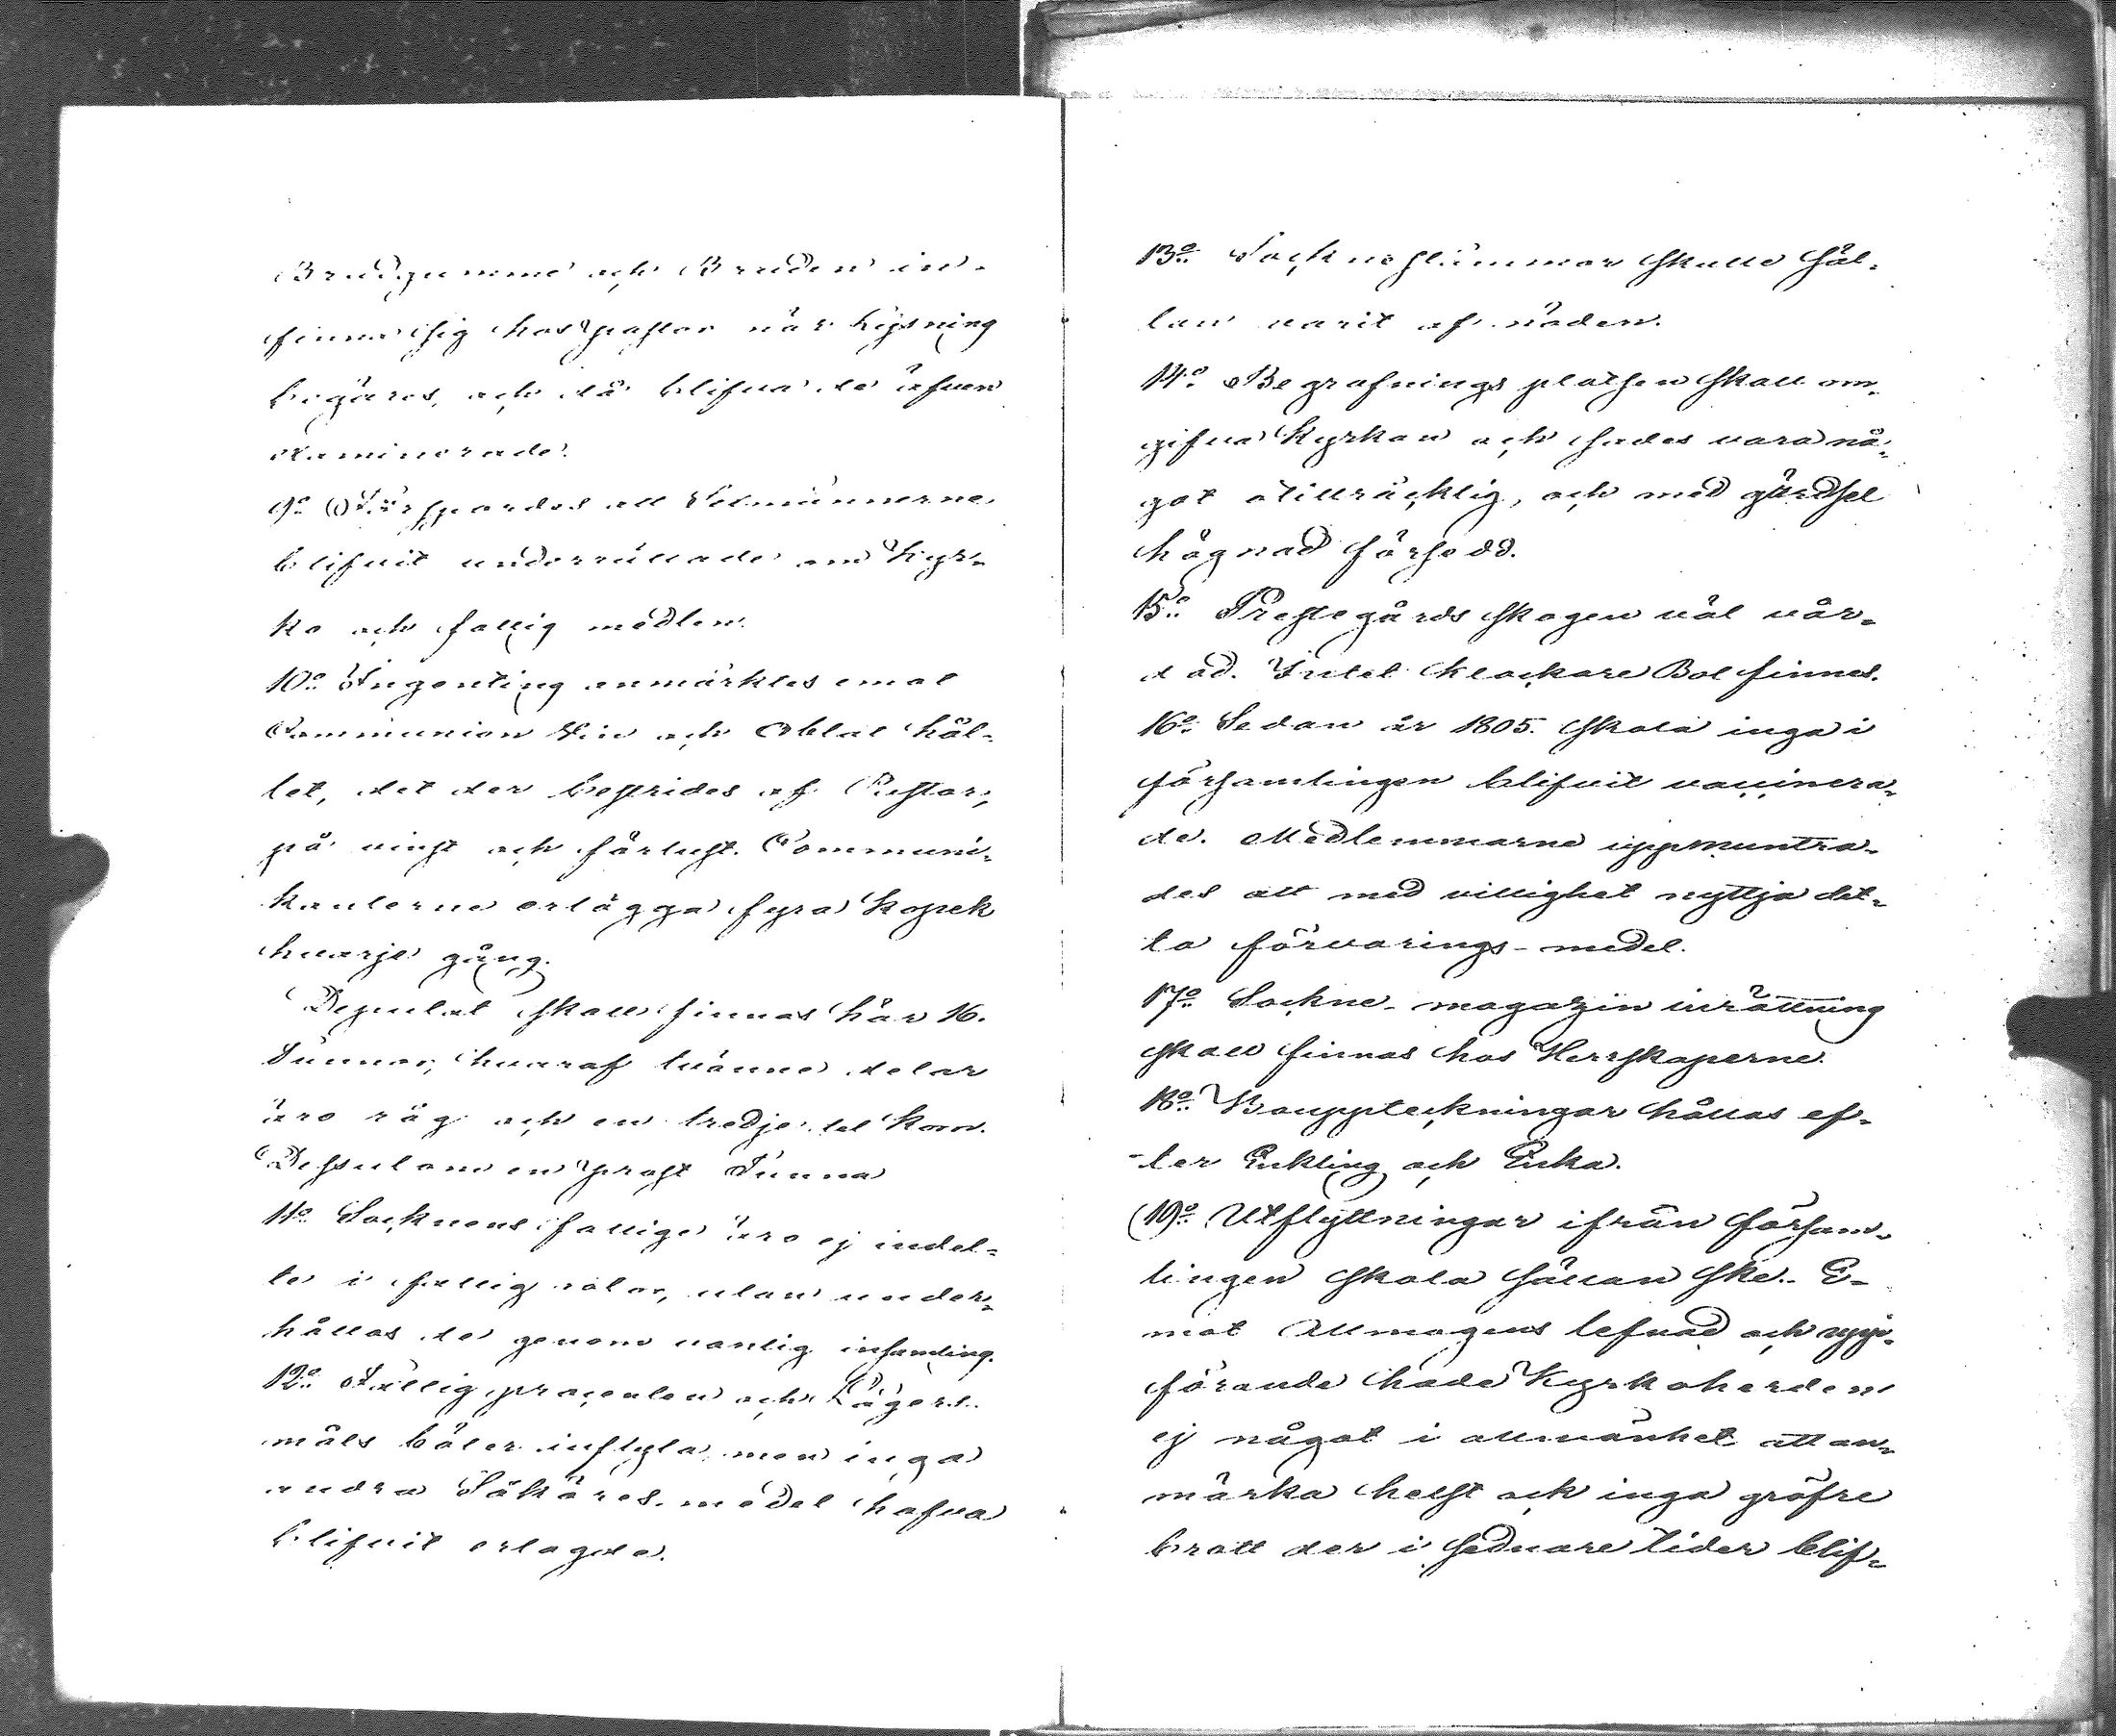 Brudgumme och Bruden in-
finna sig hos pastor när Lysning
begäres, och då blifva de äfven
examinerade.
9:o Förspordes att Sexmännerne
blifvit underrättade om Kyr-
ko och fattig medlen.
10:o Ingenting anmärktes emot
Communion Vin och Oblat hål-
let, det der bestrides af Pastor,
på vinst och förlust. Communi-
kanterne erlägga fyra Kopek
hvarje gång.
Deputat skall finnas här 16.
Tunnor, hvaraf tvänne delar
äro råg och en tredje del Korn.
Dessutom en prost Tunna
11:o Socknens fattige äro ej indel-
te i fattig rotar, utan under-
hållas de genom vanlig insamling.
12:o Fattig procenten och Lägers-
måls böter inflyta, men inga
andra Sakören medel hafva
blifvit erlagda.
13:o Sockne stämmor skulle säl-
lan varit af nöden.
14:o Begrafnings platsen skall om-
gifva Kyrkan och sades vara nå-
got otillräcklig, och med gärdsel
hägnad försedd.
15:o Prestegårds skogen väl vår-
dad. Intet Klockare Bol finnes.
16:o Sedan år 1805. skola inga i
församlingen blifvit vaccinera-
de. Medlemmarne uppmuntra-
des att med villighet nyttja det-
ta förvarings-medel.
17:o Sockne-magazin inrättning
skall finnas hos Herrskaperne.
18:o Bouppteckningar hållas ef-
ter Enkling och Enka.
19:o Utflyttningar ifrån försam-
lingen skola sällan ske. E-
mot Allmogens lefnad och upp-
förande hade Kyrkoherden
ej något i allmänhet att an-
märka helst ock inga gröfre
brott der i sednare tider blif-